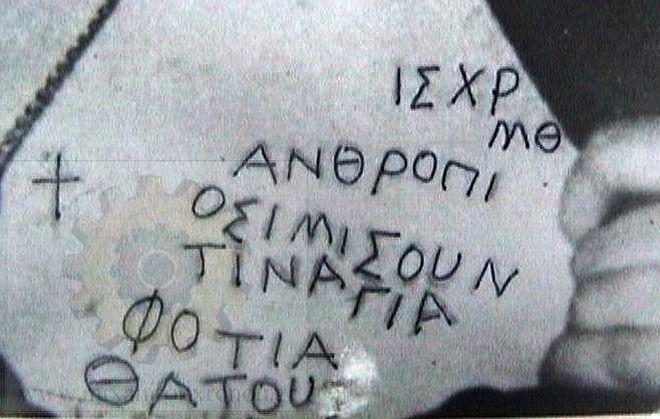 ΙΣΧΡ
ΜΘ
†
ΑΝΘΡΟΠΙ
ΟΣΙΜΙΣΟΥΝ
ΤΙΝΑΓΙΑ
ΦΟΤΙΑ
ΘΑΤΟΥ